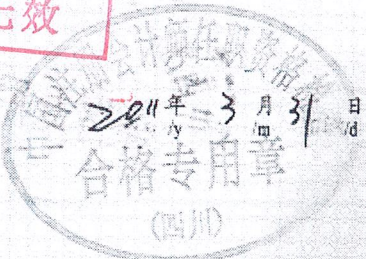 效
国注册会计师任职资格检
2011 年 3 月 31 日
/y /m /d
合格专用章
(四川)